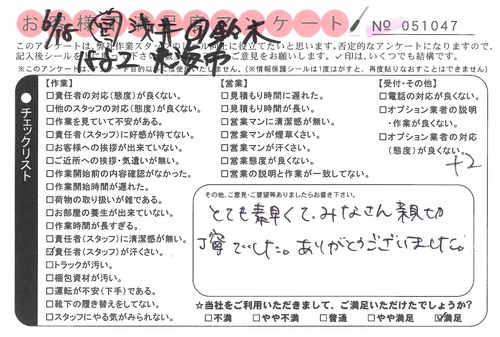 お客様満足度アンケート
No 051047
6/18 営 浅井 の 鈴木
このアンケートは、弊社作業スタッフのレベル向上に役立てたいと思います。否定的なアンケートになりますので、
記入後シールを
ご意見をお願いします。✓印は、いくつでも結構です。
(※情報保護シールは1度はがすと、再度貼りなおすことはできません)
チェックリスト
【作業】
□責任者の対応(態度)が良くない。
□他のスタッフの対応(態度)が良くない。
□作業を見ていて不安がある。
□責任者(スタッフ)に好感が持てない。
□お客様への挨拶が出来ていない。
□ご近所への挨拶・気遣いが無い。
□作業開始前の内容確認がなかった。
□作業開始時間が遅れた。
□荷物の取り扱いが雑である。
□お部屋の養生が出来ていない。
□作業時間が長すぎる。
□責任者(スタッフ)に清潔感が無い。
☑責任者(スタッフ)が汗くさい。
□トラックが汚い。
□梱包資材が汚い。
□運転が不安(下手)である。
□靴下の履き替えをしてない。
□スタッフにやる気がみられない。
【営業】
□見積もり時間に遅れた。
□見積もり時間が長い。
□営業マンに清潔感が無い。
□営業マンが煙草くさい。
□営業マンが汗くさい。
□営業態度が良くない。
□営業の説明と作業が一致してない。
【受付・その他】
□電話の対応が良くない。
□オプション業者の説明
・作業が良くない。
□オプション業者の対応
(態度)が良くない。
+2
その他、ご意見・ご要望等ありましたらお書き下さい。
とても素早くて、みなさん親切
丁寧でした。ありがとうございました。
☆当社をご利用いただきまして、ご満足いただけたでしょうか?
□不満 □やや不満 □普通 □やや満足 ☑満足